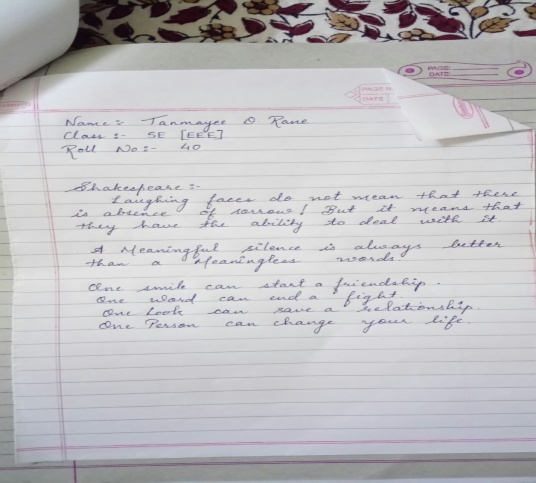 PAGE
DATE
PAGE
DATE
Name :- Tanmayee O Rane
Class :- SE [EEE]
Roll No :- 40
Shakespeare :-
Laughing faces do not mean that there
is absence of sorrow! But it means that
they have the ability to deal with it
A Meaningful silence is always better
than a Meaningless words.
One smile can start a friendship.
One word can end a fight.
One Look can save a relationship.
One Person can change your life.